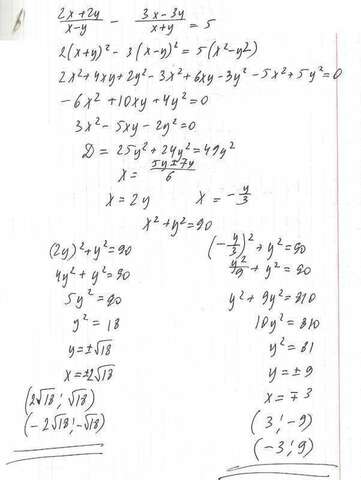 (2x+2y)/(x-y) - (3x-3y)/(x+y) = 5
2(x+y)² - 3(x-y)² = 5(x²-y²)
2x²+4xy+2y²-3x²+6xy-3y²-5x²+5y²=0
-6x²+10xy+4y²=0
3x²-5xy-2y²=0
D = 25y²+24y²=49y²
x = (5y±7y)/6
x = 2y x = -y/3
x²+y²=90
(2y)²+y²=90
4y²+y²=90
5y²=90
y²=18
y=±√18
x=±2√18
(2√18; √18)
(-2√18; -√18)
(-y/3)²+y²=90
y²/9+y²=90
y²+9y²=810
10y²=810
y²=81
y=±9
x=∓3
(3; -9)
(-3; 9)